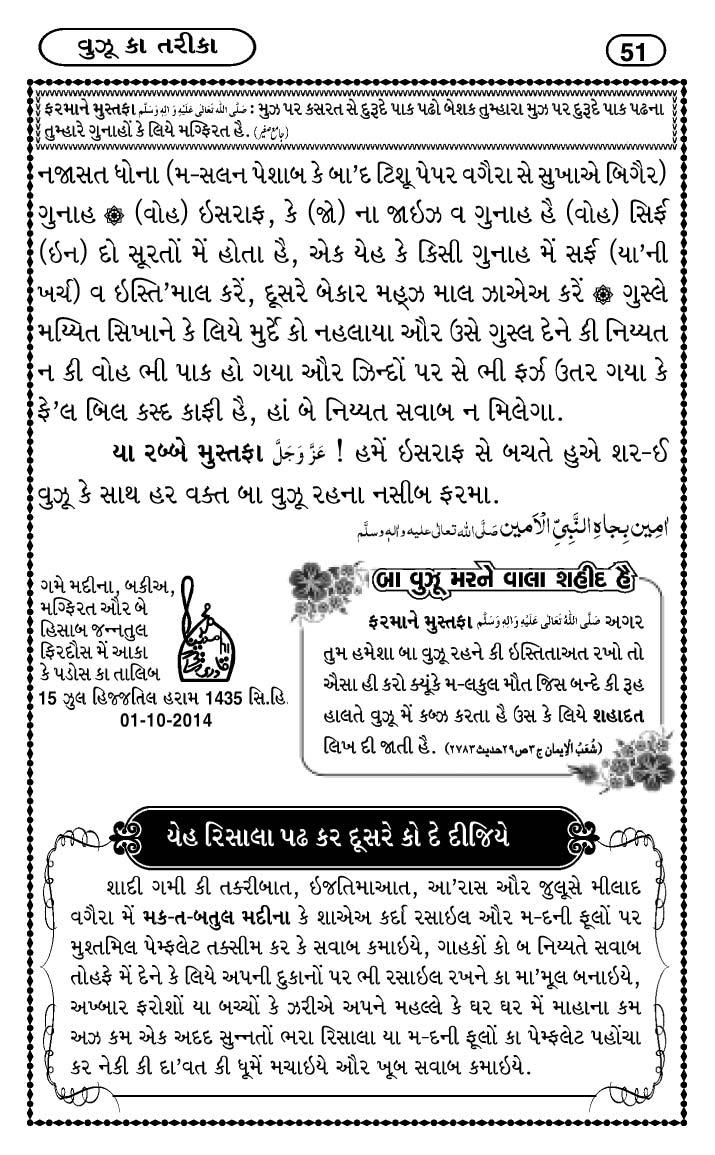 વુઝૂ કા તરીકા
51
ફરમાને મુસ્તફા صَلَّى اللهُ تَعَالٰى عَلَيْهِ وَاٰلِهٖ وَسَلَّم : મુઝ પર કસરત સે દુરૂદે પાક પઢો બેશક તુમ્હારા મુઝ પર દુરૂદે પાક પઢના
તુમ્હારે ગુનાહોં કે લિયે મગ્ફિરત હૈ. (جامع صغير)
નજાસત ધોના (મ-સલન પેશાબ કે બા’દ ટિશૂ પેપર વગૈરા સે સુખાએ બિગૈર)
ગુનાહ ❁ (વોહ) ઇસરાફ, કે (જો) ના જાઇઝ વ ગુનાહ હૈ (વોહ) સિર્ફ
(ઇન) દો સૂરતોં મેં હોતા હૈ, એક યેહ કે કિસી ગુનાહ મેં સર્ફ (યા’ની
ખર્ચ) વ ઇસ્તિ’માલ કરેં, દૂસરે બેકાર મહ્ઝ માલ ઝાએઅ કરેં ❁ ગુસ્લે
મય્યિત સિખાને કે લિયે મુર્દે કો નહલાયા ઔર ઉસે ગુસ્લ દેને કી નિય્યત
ન કી વોહ ભી પાક હો ગયા ઔર ઝિન્દોં પર સે ભી ફર્ઝ ઉતર ગયા કે
ફે’લ બિલ કસ્દ કાફી હૈ, હાં બે નિય્યત સવાબ ન મિલેગા.
યા રબ્બે મુસ્તફા عَزَّوَجَلَّ ! હમેં ઇસરાફ સે બચતે હુએ શર-ઈ
વુઝૂ કે સાથ હર વક્ત બા વુઝૂ રહના નસીબ ફરમા.
اٰمين بِجاهِ النَّبِىِّ الْاَمين صلَّى اللهُ تعالٰى عليه واٰلهٖ وسلَّم
ગમે મદીના, બકીઅ,
મગ્ફિરત ઔર બે
હિસાબ જન્નતુલ
ફિરદૌસ મેં આકા
કે પડોસ કા તાલિબ
15 ઝુલ હિજ્જતિલ હરામ 1435 સિ.હિ.
01-10-2014
બા વુઝૂ મરને વાલા શહીદ હૈ
ફરમાને મુસ્તફા صَلَّى اللهُ تَعَالٰى عَلَيْهِ وَاٰلِهٖ وَسَلَّم અગર
તુમ હમેશા બા વુઝૂ રહને કી ઇસ્તિતાઅત રખો તો
ઐસા હી કરો ક્યૂંકે મ-લકુલ મૌત જિસ બન્દે કી રૂહ
હાલતે વુઝૂ મેં કબ્ઝ કરતા હૈ ઉસ કે લિયે શહાદત
લિખ દી જાતી હૈ. (شُعَبُ الْاِيمان ج٣ص٢٩حديث٢٧٨٣)
યેહ રિસાલા પઢ કર દૂસરે કો દે દીજિયે
શાદી ગમી કી તક્રીબાત, ઇજતિમાઆત, આ’રાસ ઔર જુલૂસે મીલાદ
વગૈરા મેં મક-ત-બતુલ મદીના કે શાએઅ કર્દા રસાઇલ ઔર મ-દની ફૂલોં પર
મુશ્તમિલ પેમ્ફલેટ તક્સીમ કર કે સવાબ કમાઇયે, ગાહકોં કો બ નિય્યતે સવાબ
તોહફે મેં દેને કે લિયે અપની દુકાનોં પર ભી રસાઇલ રખને કા મા’મૂલ બનાઇયે,
અખ્બાર ફરોશોં યા બચ્ચોં કે ઝરીએ અપને મહલ્લે કે ઘર ઘર મેં માહાના કમ
અઝ કમ એક અદદ સુન્નતોં ભરા રિસાલા યા મ-દની ફૂલોં કા પેમ્ફલેટ પહોંચા
કર નેકી કી દા’વત કી ધૂમેં મચાઇયે ઔર ખૂબ સવાબ કમાઇયે.